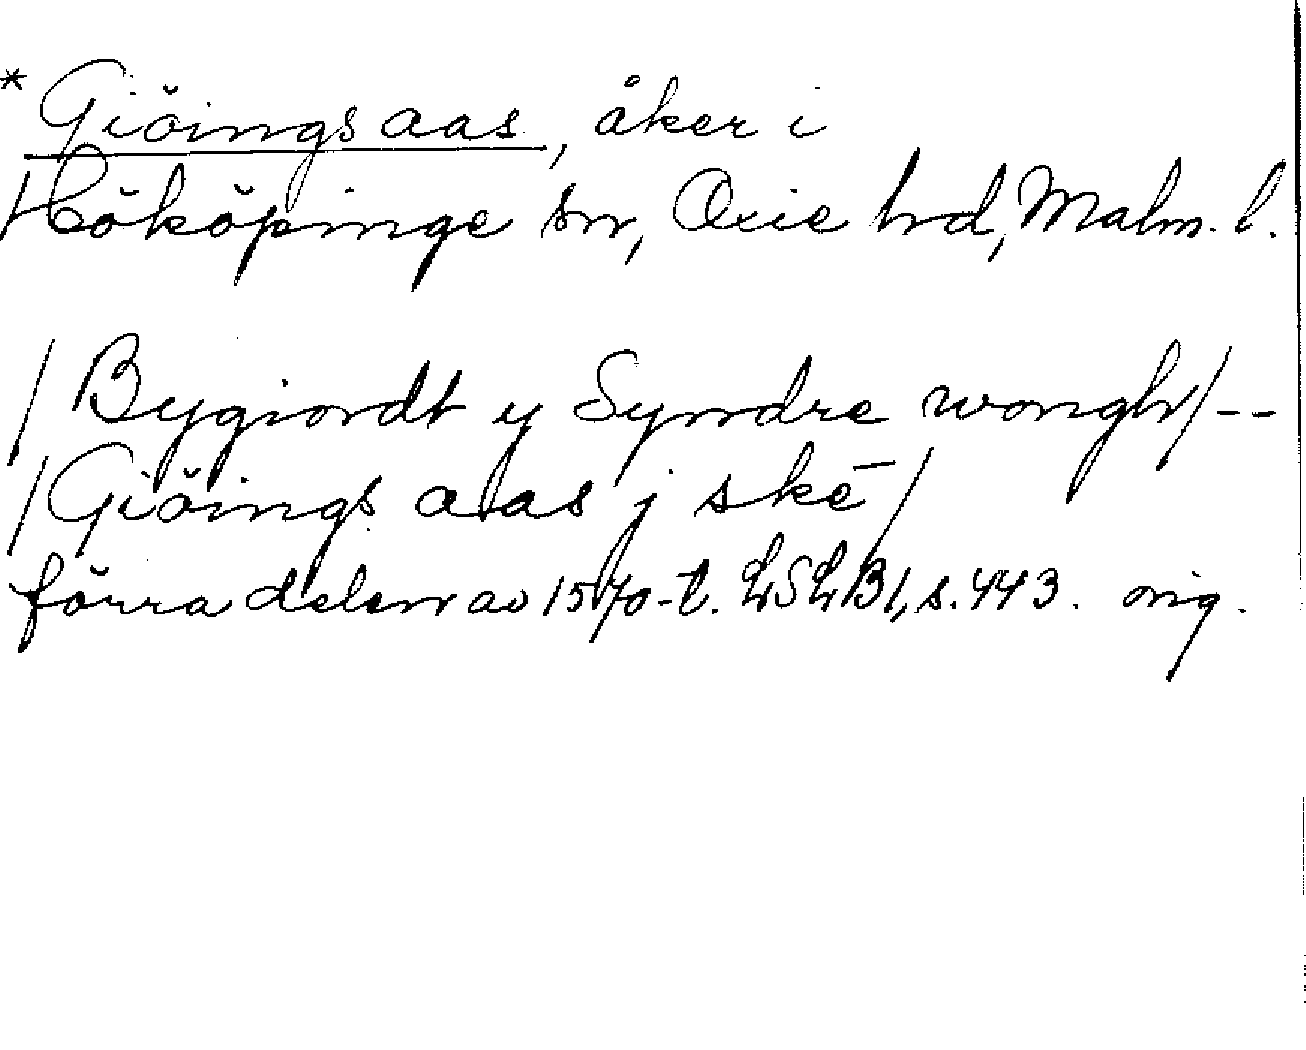 * Giöings aas, åker i
Hököpinge sn, Oxie hd, Malm. l.
/Bygiordt y Syndre wongh/--
/Giöings aas j skē/
förra delen av 1570-t. LSLB1, s. 443. orig.